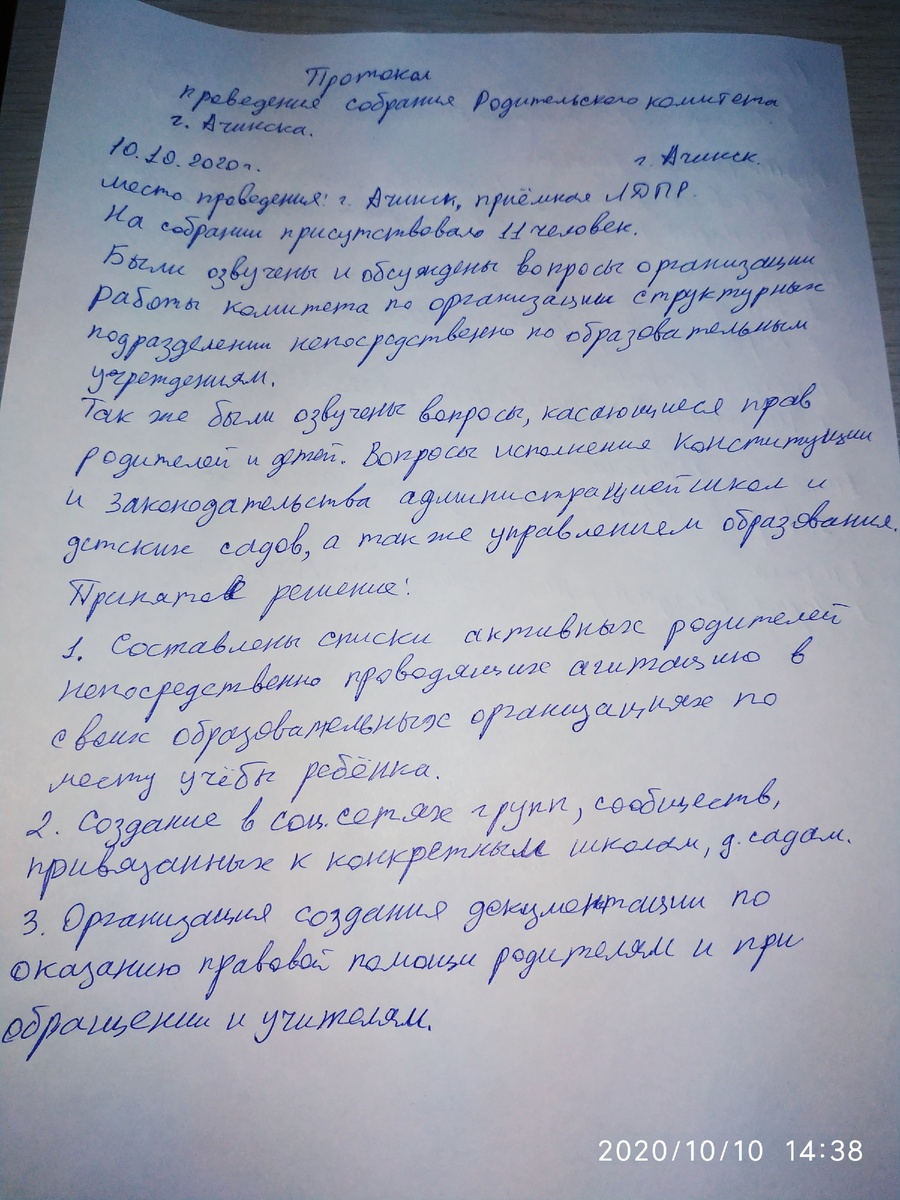 Протокол
проведения собрания Родительского комитета
г. Ачинска.
10.10.2020г.
г. Ачинск.
место проведения: г. Ачинск, приёмная ЛДПР.
На собрании присутствовало 11 человек.
Были озвучены и обсуждены вопросы организации
работы комитета по организации структурных
подразделении непосредственно по образовательным
учреждениям.
Так же были озвучены вопросы, касающиеся прав
родителей и детей. Вопросы исполнения Конституции
и законодательства администрацией школ и
детских садов, а так же управлением образования.
Принятое решение:
1. Составлены списки активных родителей
непосредственно проводящих агитацию в
своих образовательных организациях по
месту учёбы ребёнка.
2. Создание в соц. сетях групп, сообществ,
привязанных к конкретным школам, д. садам.
3. Организация создания документации по
оказанию правовой помощи родителям и при
обращении и учителям.
2020/10/10 14:38